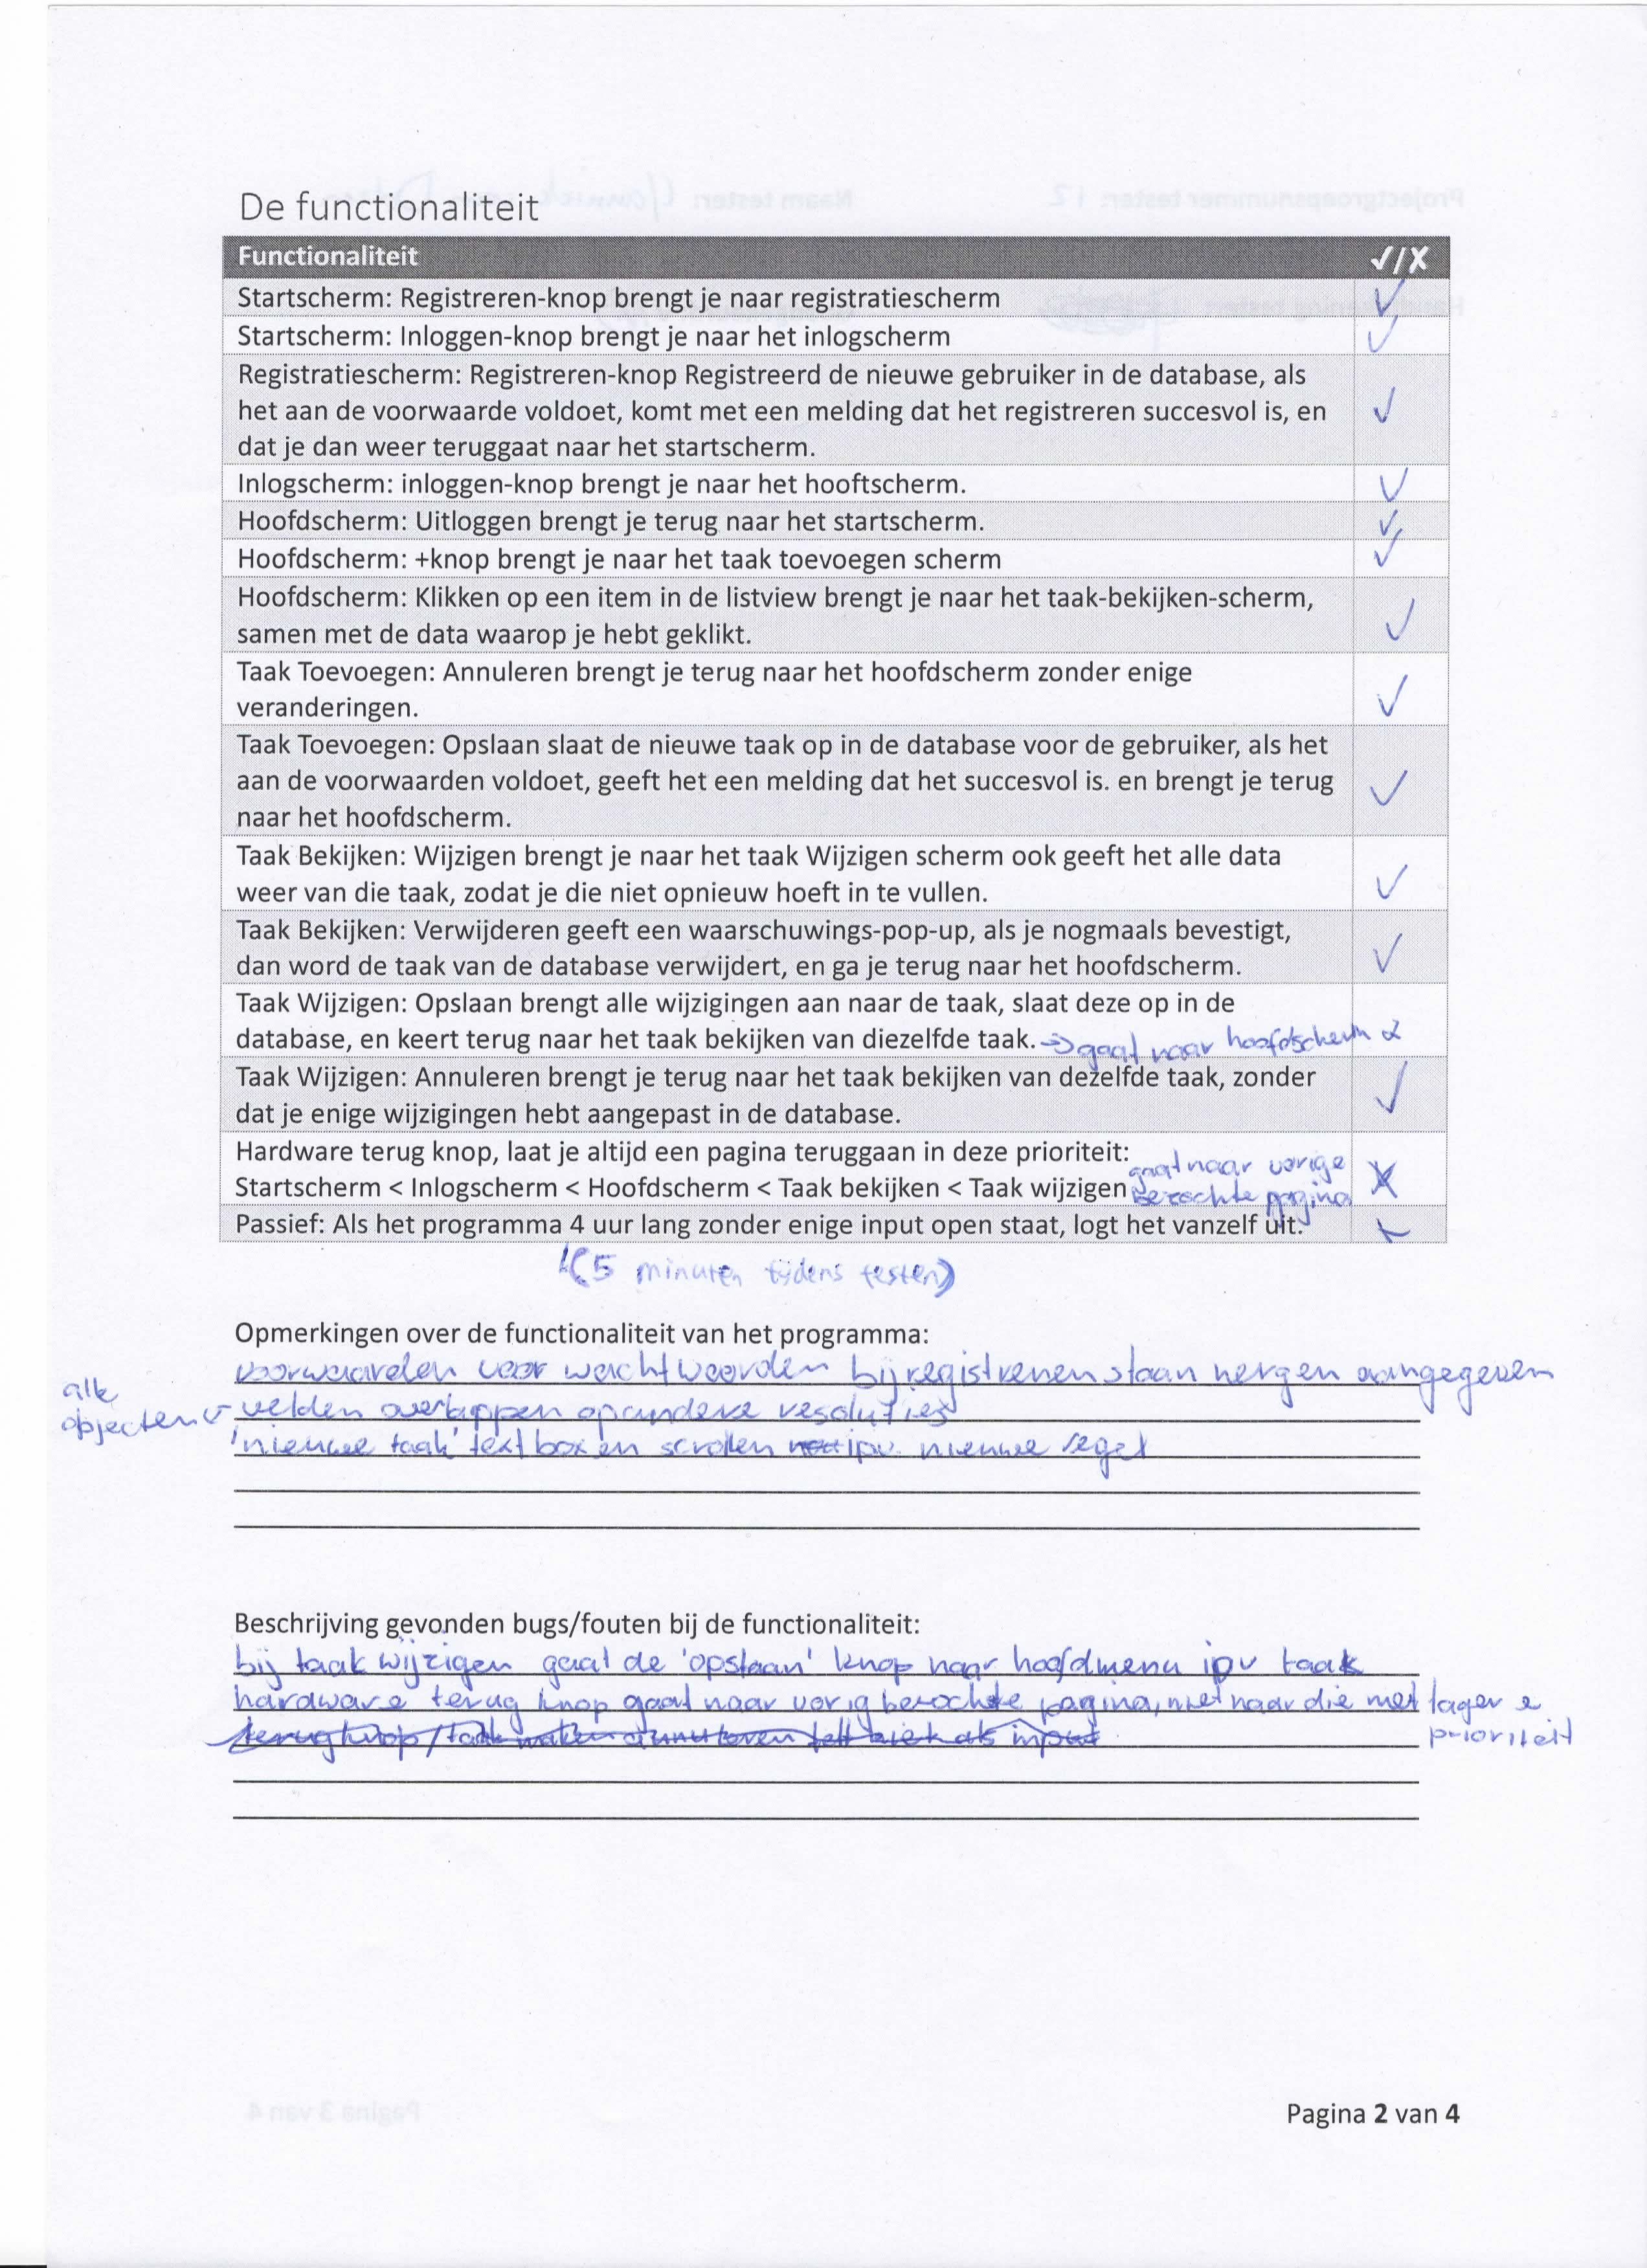 De functionaliteit
Functionaliteit ✓/X
Startscherm: Registreren-knop brengt je naar registratiescherm ✓
Startscherm: Inloggen-knop brengt je naar het inlogscherm ✓
Registratiescherm: Registreren-knop Registreerd de nieuwe gebruiker in de database, als
het aan de voorwaarde voldoet, komt met een melding dat het registreren succesvol is, en ✓
dat je dan weer teruggaat naar het startscherm.
Inlogscherm: inloggen-knop brengt je naar het hooftscherm. ✓
Hoofdscherm: Uitloggen brengt je terug naar het startscherm. ✓
Hoofdscherm: +knop brengt je naar het taak toevoegen scherm ✓
Hoofdscherm: Klikken op een item in de listview brengt je naar het taak-bekijken-scherm, ✓
samen met de data waarop je hebt geklikt.
Taak Toevoegen: Annuleren brengt je terug naar het hoofdscherm zonder enige ✓
veranderingen.
Taak Toevoegen: Opslaan slaat de nieuwe taak op in de database voor de gebruiker, als het
aan de voorwaarden voldoet, geeft het een melding dat het succesvol is. en brengt je terug ✓
naar het hoofdscherm.
Taak Bekijken: Wijzigen brengt je naar het taak Wijzigen scherm ook geeft het alle data
weer van die taak, zodat je die niet opnieuw hoeft in te vullen. ✓
Taak Bekijken: Verwijderen geeft een waarschuwings-pop-up, als je nogmaals bevestigt, ✓
dan word de taak van de database verwijdert, en ga je terug naar het hoofdscherm.
Taak Wijzigen: Opslaan brengt alle wijzigingen aan naar de taak, slaat deze op in de
database, en keert terug naar het taak bekijken van diezelfde taak. → gaat naar hoofdscherm X
Taak Wijzigen: Annuleren brengt je terug naar het taak bekijken van dezelfde taak, zonder ✓
dat je enige wijzigingen hebt aangepast in de database.
Hardware terug knop, laat je altijd een pagina teruggaan in deze prioriteit: gaat naar vorige X
Startscherm < Inlogscherm < Hoofdscherm < Taak bekijken < Taak wijzigen bezochte pagina
Passief: Als het programma 4 uur lang zonder enige input open staat, logt het vanzelf uit.
(5 minuten tijdens testen)
Opmerkingen over de functionaliteit van het programma:
voorwaarden voor wachtwoorden bij registreren staan nergen aangegeven
alle
objecten velden overlappen op andere resoluties
'nieuwe taak' textboxen scrollen ipv. nieuwe regel
Beschrijving gevonden bugs/fouten bij de functionaliteit:
bij taak wijzigen gaat de 'opslaan' knop naar hoofdmenu ipv taak
hardware terug knop gaat naar vorig bezochte pagina, niet naar die met lagere
prioriteit
Pagina 2 van 4